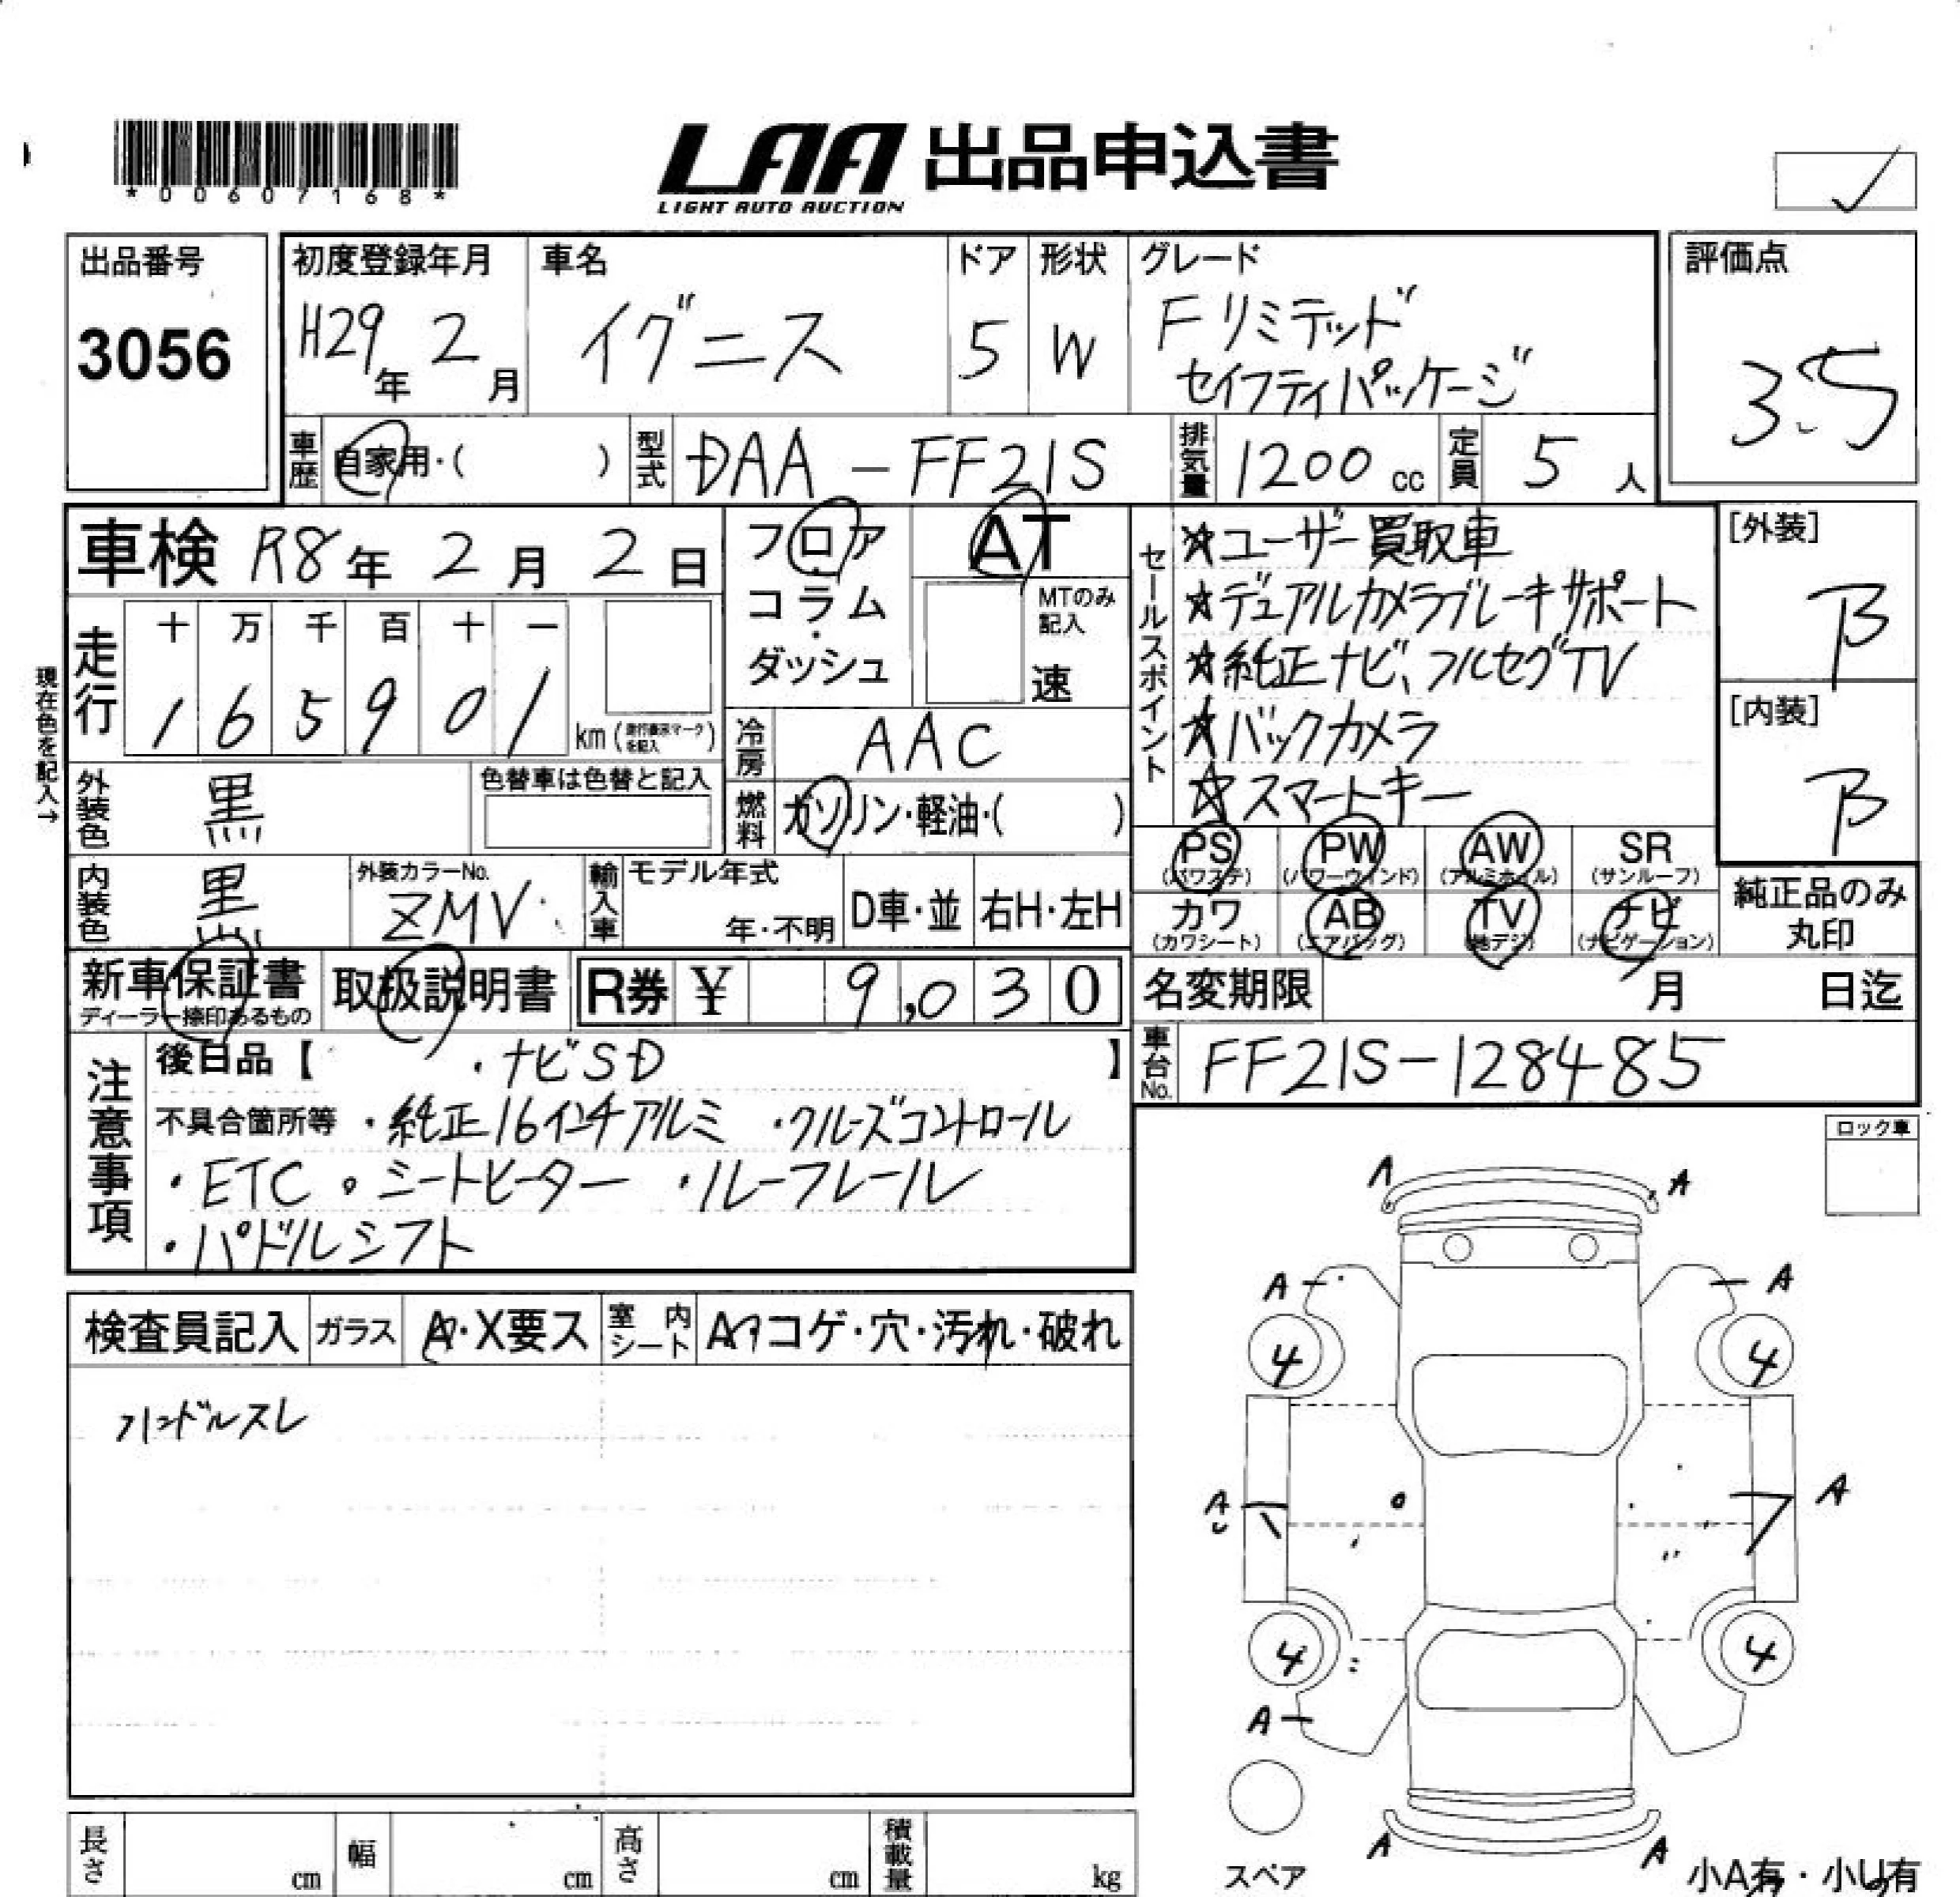 *00607168*
LAA 出品申込書
LIGHT AUTO AUCTION
出品番号
3056
初度登録年月
H29年 2月
車名
イグニス
ドア
5
形状
W
グレード
Fリミテッド
セイフティパッケージ
評価点
3.5
車歴 自家用・( )
型式 DAA-FF21S
排気量 1200 cc
定員 5 人
車検 R8年 2月 2日
フロア
コラム
・
ダッシュ
AT
MTのみ
記入
速
セールスポイント
☆ユーザー買取車
☆デュアルカメラブレーキサポート
☆純正ナビ、フルセグTV
☆バックカメラ
☆スマートキー
[外装]
B
[内装]
B
現在色を記入→
走行
十 万 千 百 十 一
1 6 5 9 0 1 km (走行表示マークを記入)
冷房 AAC
外装色 黒
色替車は色替と記入
燃料 ガソリン・軽油・( )
PS (パワステ) PW (パワーウィンド) AW (アルミホイル) SR (サンルーフ)
内装色 黒
外装カラーNo.
ZMV
輸入車 モデル年式
年・不明
D車・並 右H・左H
カワ (カワシート) AB (エアバッグ) TV (地デジ) ナビ (ナビゲーション)
純正品のみ
丸印
新車保証書
ディーラー捺印あるもの
取扱説明書
R券 ¥ 9,030
名変期限 月 日迄
注意事項
後日品【 ・ナビSD 】
車台No. FF21S-128485
不具合箇所等 ・純正16インチアルミ ・クルーズコントロール
・ETC 。シートヒーター ・ルーフレール
・パドルシフト
ロック車
A A
A A
4 4
A A
4 4
A
A A
検査員記入 ガラス A・X要ス 室内シート Aコゲ・穴・汚れ・破れ
ハンドルスレ
スペア
小A有・小U有
長さ cm 幅 cm 高さ cm 積載量 kg